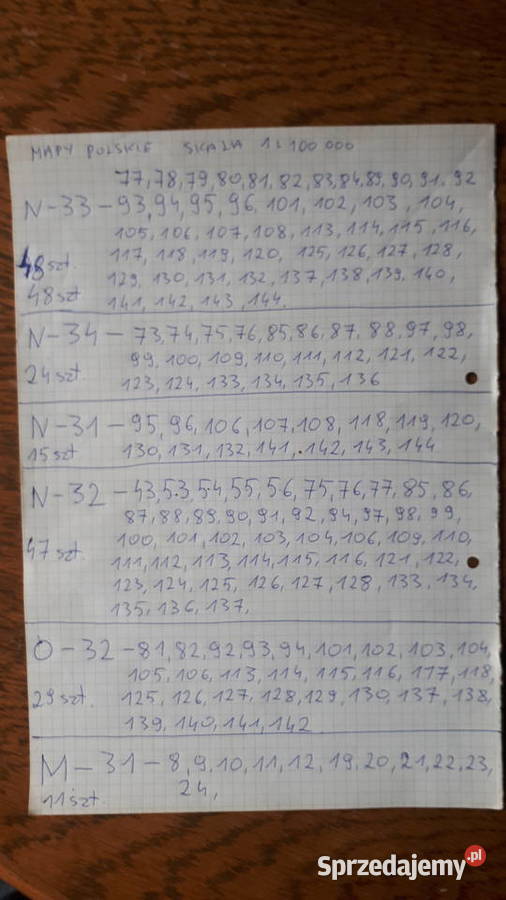 MAPY POLSKIE SKALA 1:100 000
77, 78, 79, 80, 81, 82, 83, 84, 89, 90, 91, 92
N-33 - 93, 94, 95, 96, 101, 102, 103, 104,
105, 106, 107, 108, 113, 114, 115, 116,
117, 118, 119, 120, 125, 126, 127, 128,
48 szt.
129, 130, 131, 132, 137, 138, 139, 140,
48 szt
141, 142, 143, 144.
N-34 - 73, 74, 75, 76, 85, 86, 87, 88, 97, 98,
99, 100, 109, 110, 111, 112, 121, 122,
24 szt.
123, 124, 133, 134, 135, 136
N-31 - 95, 96, 106, 107, 108, 118, 119, 120,
15 szt
130, 131, 132, 141, 142, 143, 144
N-32 - 43, 53, 54, 55, 56, 75, 76, 77, 85, 86,
87, 88, 89, 90, 91, 92, 94, 97, 98, 99,
100, 101, 102, 103, 104, 106, 109, 110,
47 szt.
111, 112, 113, 114, 115, 116, 121, 122,
123, 124, 125, 126, 127, 128, 133, 134,
135, 136, 137,
O-32 - 81, 82, 92, 93, 94, 101, 102, 103, 104,
105, 106, 113, 114, 115, 116, 117, 118,
29 szt.
125, 126, 127, 128, 129, 130, 137, 138,
139, 140, 141, 142
M-31 - 8, 9, 10, 11, 12, 19, 20, 21, 22, 23,
11 szt.
24,
Sprzedajemy.pl